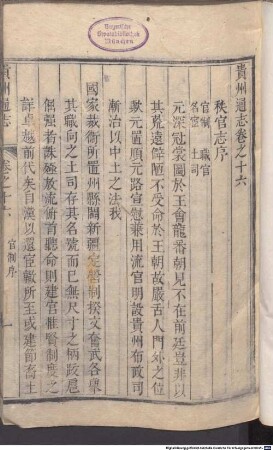 貴州通志卷之十六
官制 職官
名宦 土司
秩官志序
元深冠裳圖於王會龍番朝見不在前廷豈非以
其荒遠僻陋不受命於王朝故嚴古人門外之位
歟元置順元路宣慰兼用流官明設貴州布政司
漸治以中土之法我
國家裁衛所置州縣闢新疆定營制揆文奮武各舉
其職向之土司存其名號而已無尺寸之柄跋扈
倔强者誅殛放流衛首聽命則建官惟賢制度之
詳卓越前代矣自漢以還宣轍所至或建節畜士
貴州通志
卷之十六
官制序
一
Bayerische
Staatsbibliothek
München